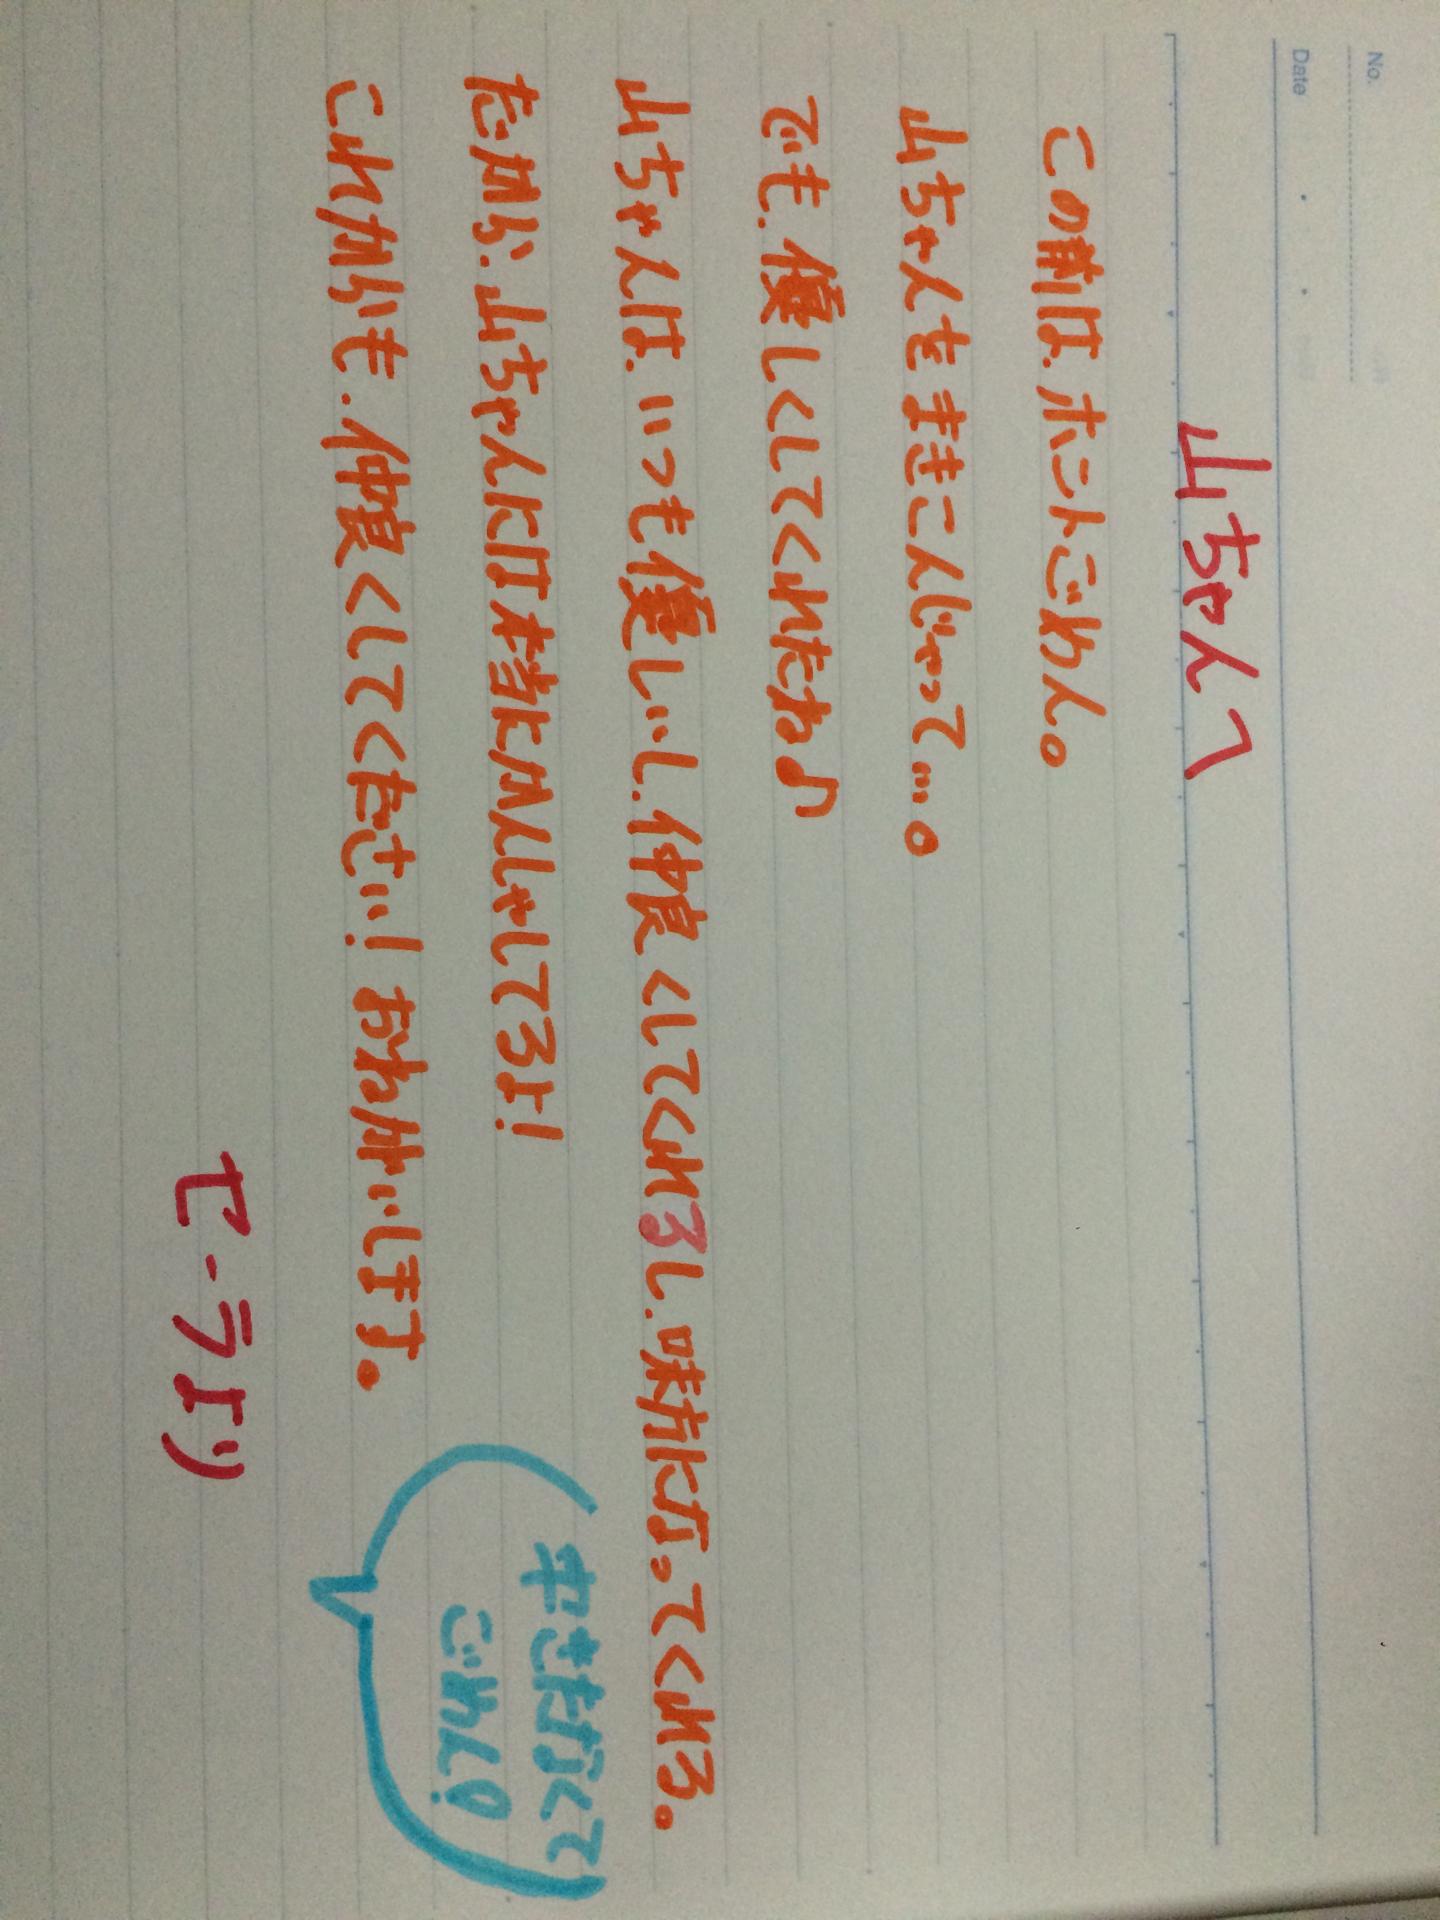 No.
Date
山ちゃんへ
この前は、ホントごめん。
山ちゃんをまきこんじゃって…。
でも、優しくしてくれたね♪
山ちゃんは、いつも優しいし、仲良くしてくれるし、味方になってくれる。
だから、山ちゃんには本当にかんしゃしてるよ!
これからも、仲良くしてください!おねがいします。
字きたなくて
ごめん!
セーラより